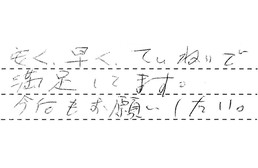 安く、早く、ていねいで
満足してます。
今後もお願いしたい。